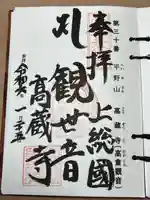 第三十番 平野山 高蔵寺(高倉観音)
奉拝 上総國
札 観世音
高蔵寺
令和六 一月